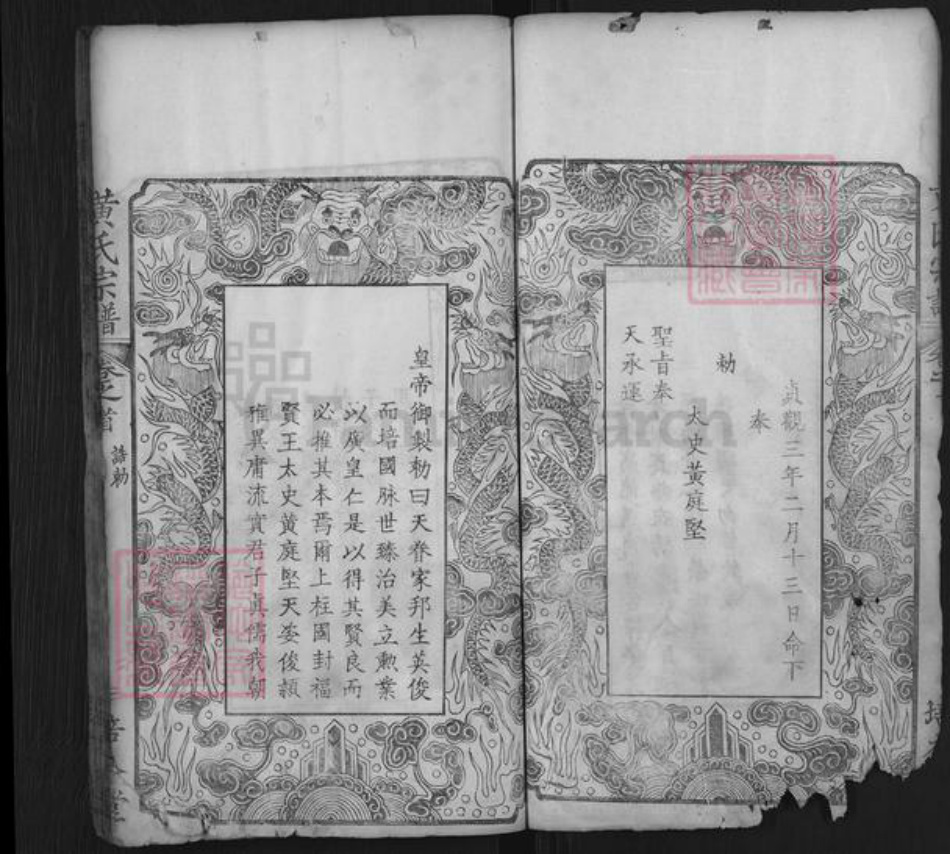 貞觀三年二月十三日命下
奉
勅
太史黃庭堅
聖旨奉
天承運
皇帝御製勅曰天眷家邦生英俊
而培國脉世臻治美立勳業
以廣皇仁是以得其賢良而
必推其本焉爾上柱國封福
賢王太史黃庭堅天姿俊穎
雅異庸流實君子眞儒我朝
黃氏宗譜
卷之首
誥勅